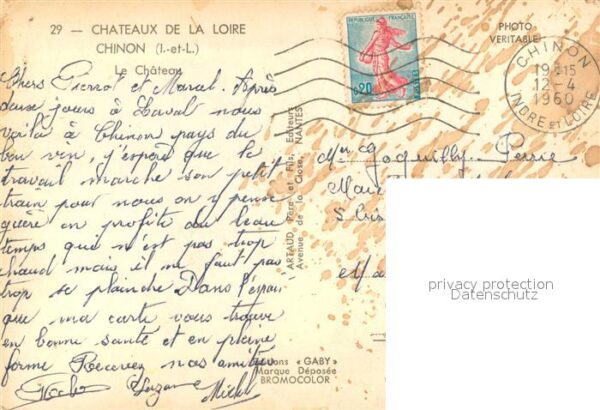 29 — CHATEAUX DE LA LOIRE
CHINON (I.-et-L.)
Le Château
Chers Pierrot et Marcel. Après
deux jours à Laval nous
voilà à Chinon pays du
bon vin, j'espère que le
travail marche son petit
train pour nous on y pense
guère on profite du beau
temps qui n'est pas trop
chaud mais il ne faut pas
trop se plaindre Dans l'espoir
que ma carte vous trouve
en bonne santé et en pleine
forme Recevez nos amitiés
Suzanne Michel
ARTAUD Père et Fils, Editeurs
Avenue de la Close, NANTES
REPUBLIQUE FRANÇAISE
0,20
PHOTO
VERITABLE
CHINON
19-15
12-4
1960
INDRE ET LOIRE
Pierre
privacy protection
Datenschutz
"GABY"
Marque Déposée
BROMOCOLOR